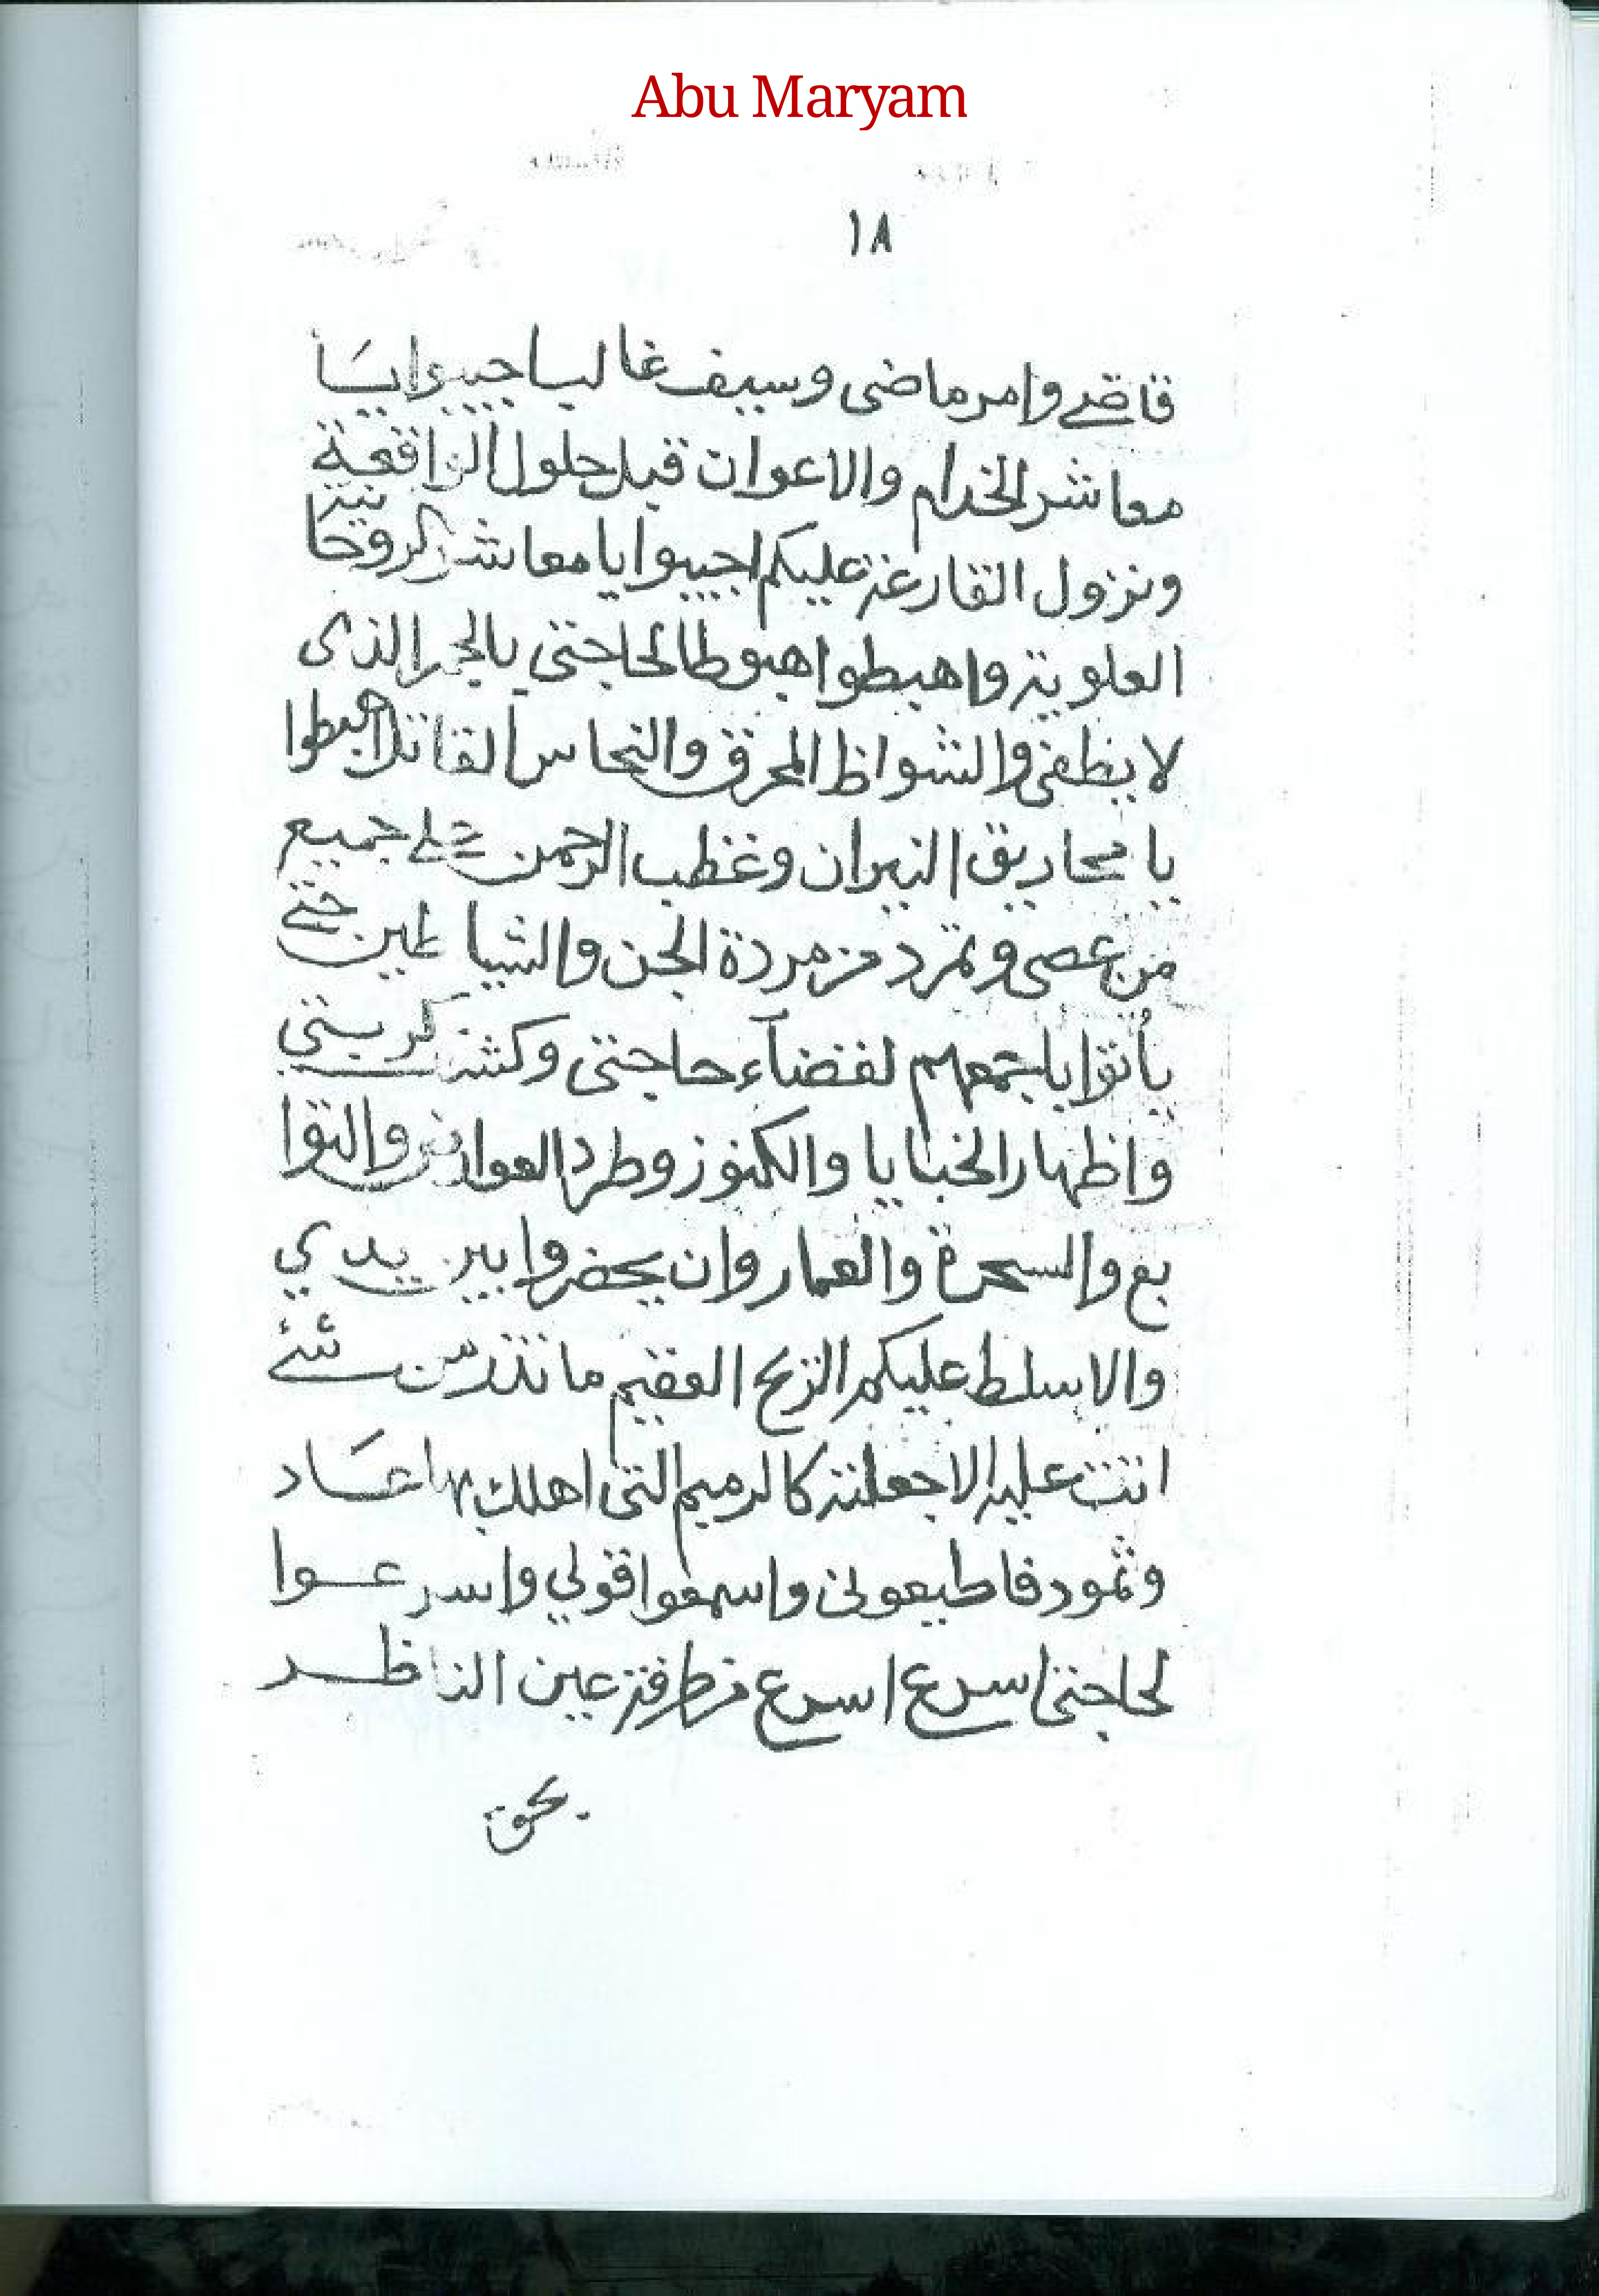 Abu Maryam
١٨
قاضے وامر ماضى وسيف غالب اجيبوا يَا
معاشر الخدام والاعوان قبل حلول الواقعة
ونزول القارعة عليكم اجيبوا يا معاشر الروحا نية
العلوية واهبطوا هبوطا لحاجتى بالجمر الذى
لا يطفى والشواظ المحرق والنحاس القاتل اهبطوا
يا محاريق النيران وغظب الرحمن على جميع
من عصى وتمرد من مردة الجن والشياطين حتى
يأتوا باجمعهم لقضآء حاجتى وكشف كربتى
واظهار الخبايا والكنوز وطرد العوارض والتوا
بع والسحرة والعمار وان يحضروا بين يدي
والا سلط عليكم الريح العقيم ما تذر من شئ
اتت عليه الا جعلته كالرميم التى اهلك بها عَاد
وثمود فاطيعونى واسمعوا قولي واسرعوا
لحاجتى اسرع اسرع من طرفة عين الناظر
بحق